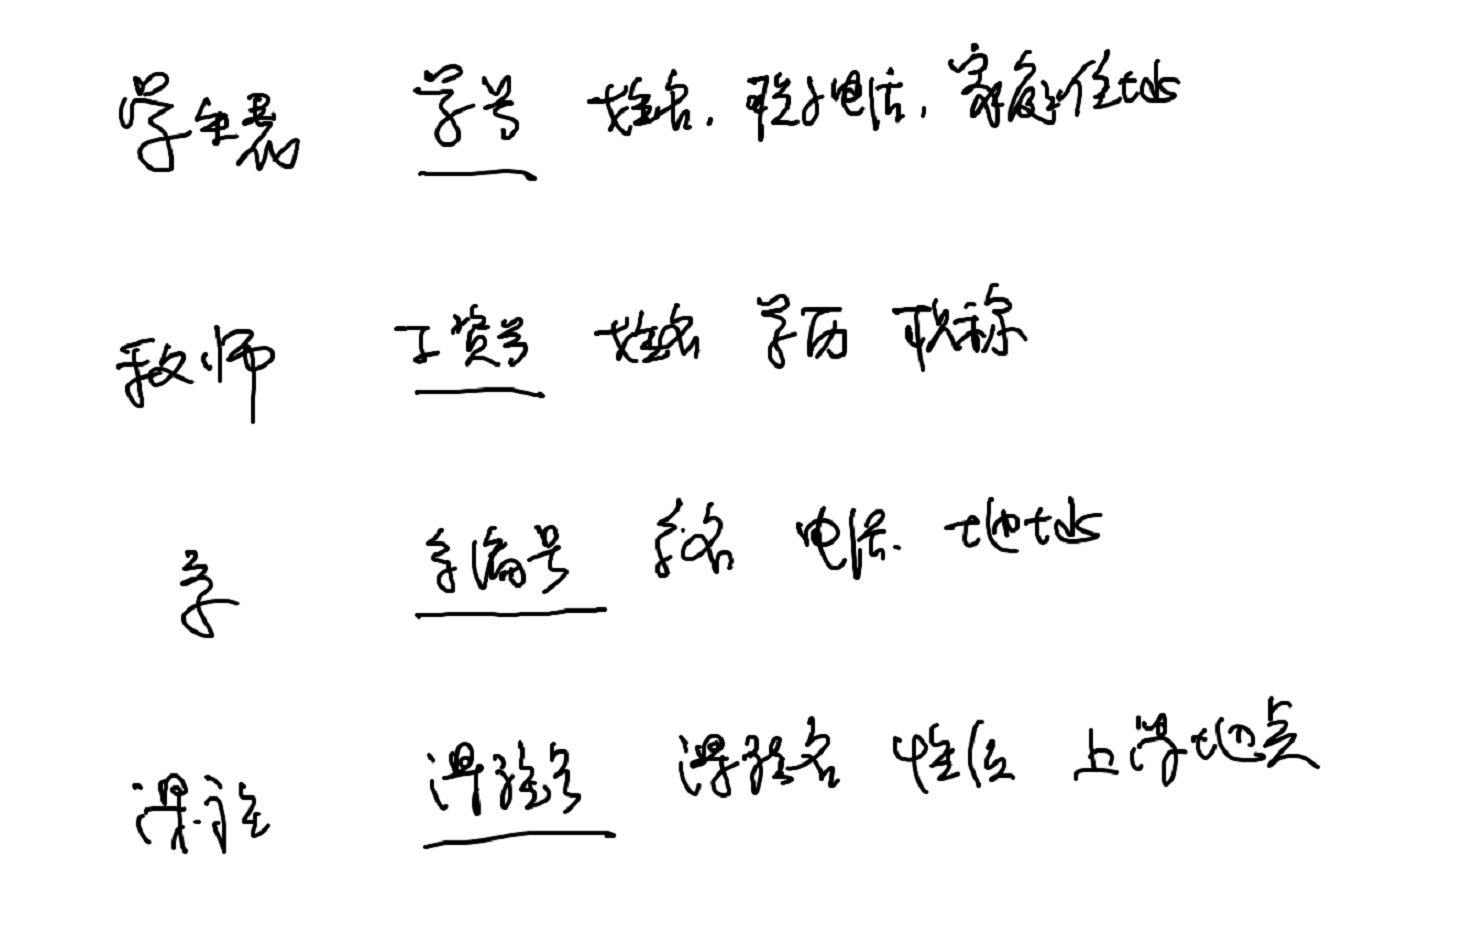 学生表 学号 姓名. 联系电话, 家庭住址
教师 工资号 姓名 学历 职称
系 系编号 系名 电话. 地址
课程 课程号 课程名 上课地点